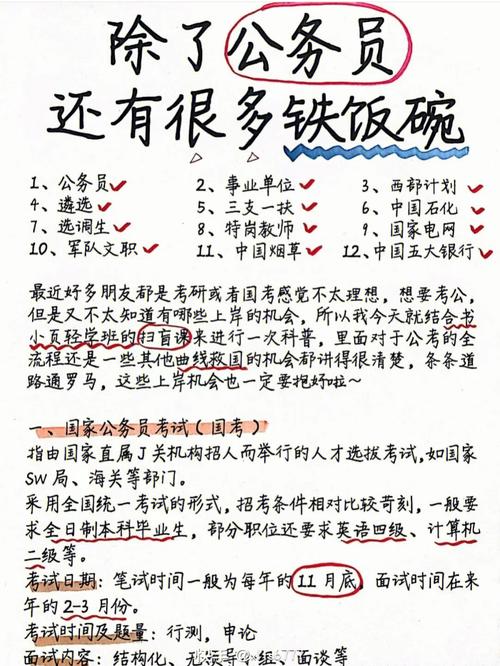 除了公务员
还有很多铁饭碗
1、公务员 2、事业单位 3、西部计划
4、遴选 5、三支一扶 6、中国石化
7、选调生 8、特岗教师 9、国家电网
10、军队文职 11、中国烟草 12、中国五大银行
最近好多朋友都是考研或者国考感觉不太理想，想要考公，
但是又不太知道有哪些上岸的机会，所以我今天就结合书
小页轻学班的扫盲课来进行一次科普，里面对于公考的全
流程还是一些其他曲线救国的机会都讲得很清楚，条条道
路通罗马，这些上岸机会也一定要抱好啦～
一、国家公务员考试（国考）
指由国家直属J关机构招人而举行的人才选拔考试，如国家
SW局、海关等部门。
采用全国统一考试的形式，招考条件相对比较苛刻，一般要
求全日制本科毕业生，部分职位还要求英语四级、计算机
二级等。
考试日期：笔试时间一般为每年的11月底，面试时间在来
年的2-3月份。
考试时间及题量：行测，申论
面试内容：结构化、无领导小组、面谈等